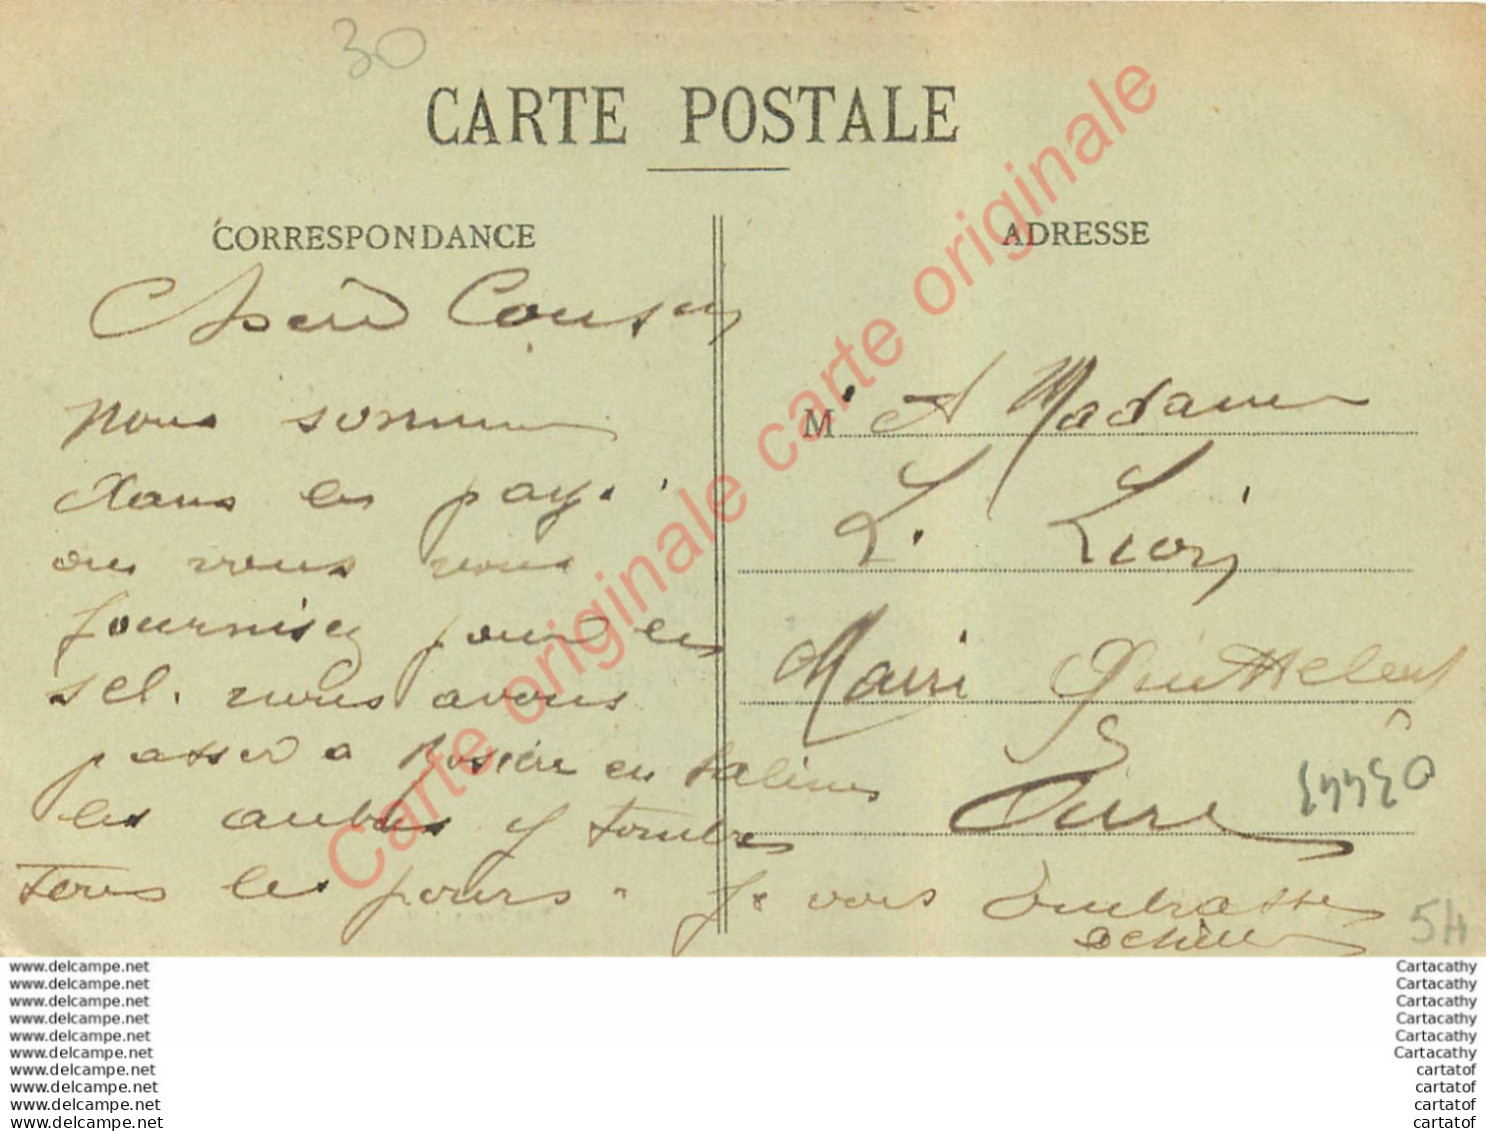 30
CARTE POSTALE
CORRESPONDANCE
ADRESSE
Cher Cousin
nous sommes
dans les pays
ou vous vous
fournisez pour le
sel. nous avons
passer a Rosiere en Salines
les aubus y tombes
tous les jours. Je vous embrasse
Achille
M A Madame
L. Liory
Mairi
Eure
54
Carte originale carte originale
www.delcampe.net
www.delcampe.net
www.delcampe.net
www.delcampe.net
www.delcampe.net
www.delcampe.net
www.delcampe.net
www.delcampe.net
www.delcampe.net
www.delcampe.net
Cartacathy
Cartacathy
Cartacathy
Cartacathy
Cartacathy
Cartacathy
cartatof
cartatof
cartatof
cartatof